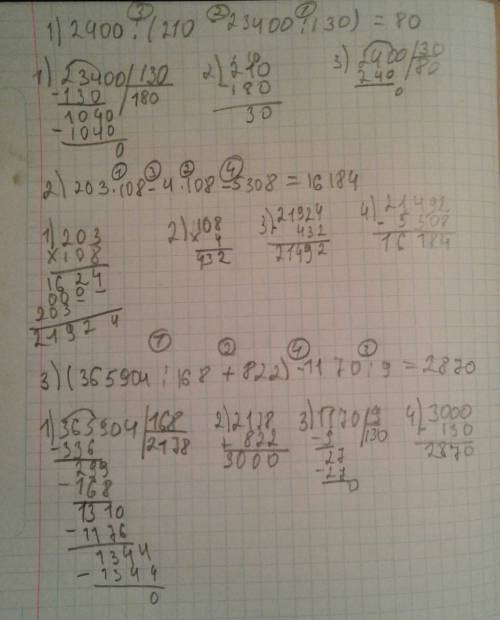 1) 2400 : (210 - 23400 : 130) = 80
1) 23400 | 130
- 130 | 180
1040
- 1040
0
2) 210
- 180
30
3) 2400 | 30
240 | 80
0
2) 203 · 108 - 4 · 108 - 5308 = 16184
1) 203
× 108
1624
000
203
21924
2) 108
× 4
432
3) 21924
- 432
21492
4) 21492
- 5308
16184
3) (365904 : 168 + 822) - 1170 : 9 = 2870
1) 365904 | 168
- 336 | 2178
299
- 168
1310
- 1176
1344
- 1344
0
2) 2178
+ 822
3000
3) 1170 | 9
- 9 | 130
27
- 27
0
4) 3000
- 130
2870